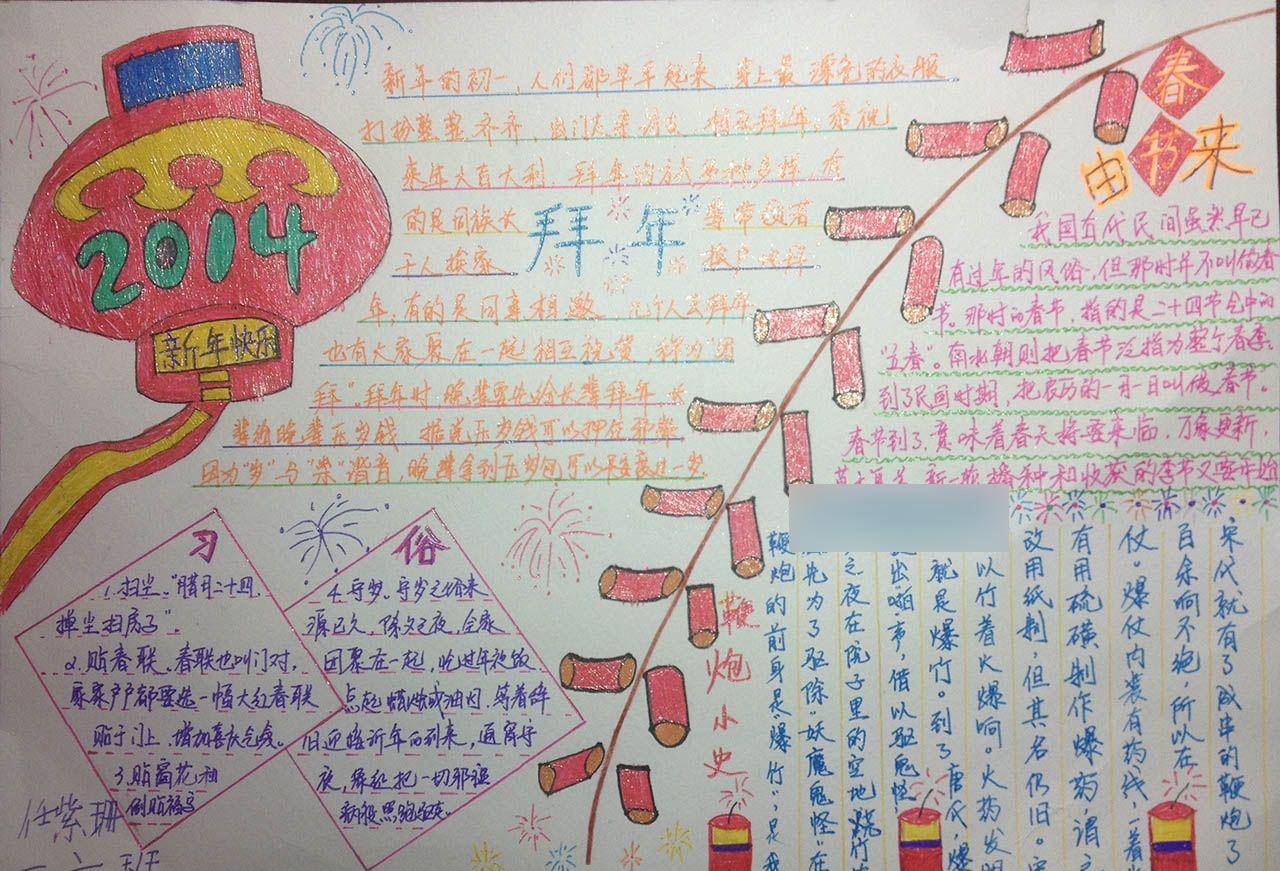 2014
新年快乐
新年的初一，人们都早早起来，穿上最漂亮的衣服
打扮整整齐齐，出门去亲朋友，相互拜年，恭祝
来年大吉大利，拜年的方式多种多样，有
的是同族长
带领若
干人挨家
挨户地拜
拜年
年，有的是同事相邀几个人去拜年
也有大家聚在一起相互祝贺，称为"团
拜"。拜年时，晚辈要先给长辈拜年，长
辈给晚辈压岁钱，据说压岁钱可以押住邪祟，
因为"岁"与"祟"谐音，晚辈拿到压岁
一岁.
春节由来
我国古代民间虽然早已
有过年的风俗，但那时并不叫做春
节。那时的春节，指的是二十四节令中的
春"。南北朝则把春节泛指为整个春季。
到了民国时期，把农历的一月一日叫做"春节。
春节到了，意味着春天将要来临，万象更新，
新一轮播种和收获的季节又要开始
习
俗
1.扫尘。"腊月二十四，
掸尘扫房子"。
2.贴春联。春联也叫门对，
家家户户都要选一幅大红春联
贴于门上，增加喜庆气氛。
3.贴窗花和
倒贴福字
4.守岁。守岁之俗来
源已久，除夕之夜，全家
团聚在一起，吃过年夜饭，
点起蜡烛或油灯，等着辞
旧迎
新年的到来，通宵守
夜，象征把一切邪瘟
病疫照跑驱走。
任紫珊
鞭炮小史
鞭炮的前身是"爆竹"，是我
先为了驱除"妖魔鬼怪"在
之夜在院子里的空地烧竹
出啪声，借以驱鬼怪
就是爆竹。到了唐代，爆
以竹着火爆响。火药发明
改用纸制，但其名仍旧。
有用硫磺制作爆药，谓之
仗。爆仗内装有药线，一着
百余响不绝，所以在
宋代就有了成串的鞭炮了